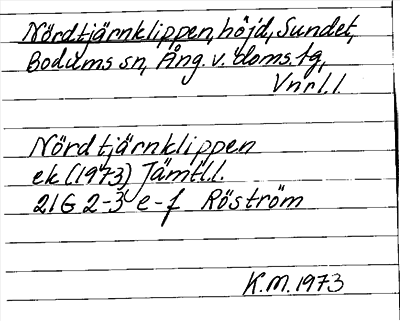 Nördtjärnklippen, höjd, Sundet,
Bodums sn, Ång. v. doms. tg,
Vnrl. l.
Nördtjärnklippen
ek (1973) Jämtl.l.
21G 2-3 e-f Röström
K.M. 1973